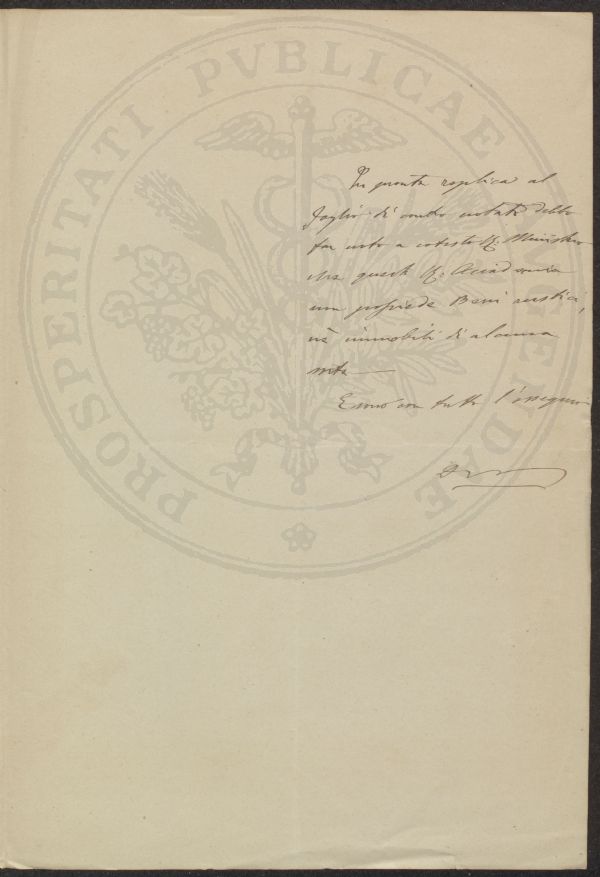 PROSPERITATI PVBLICAE AVGENDAE
In pronta replica al
foglio di contro notato debbo
far noto a cotesto R. Ministero
che questa R. Accademia
non possiede Beni rustici,
nè immobili di alcuna
sorta —
E sono con tutto l'ossequio